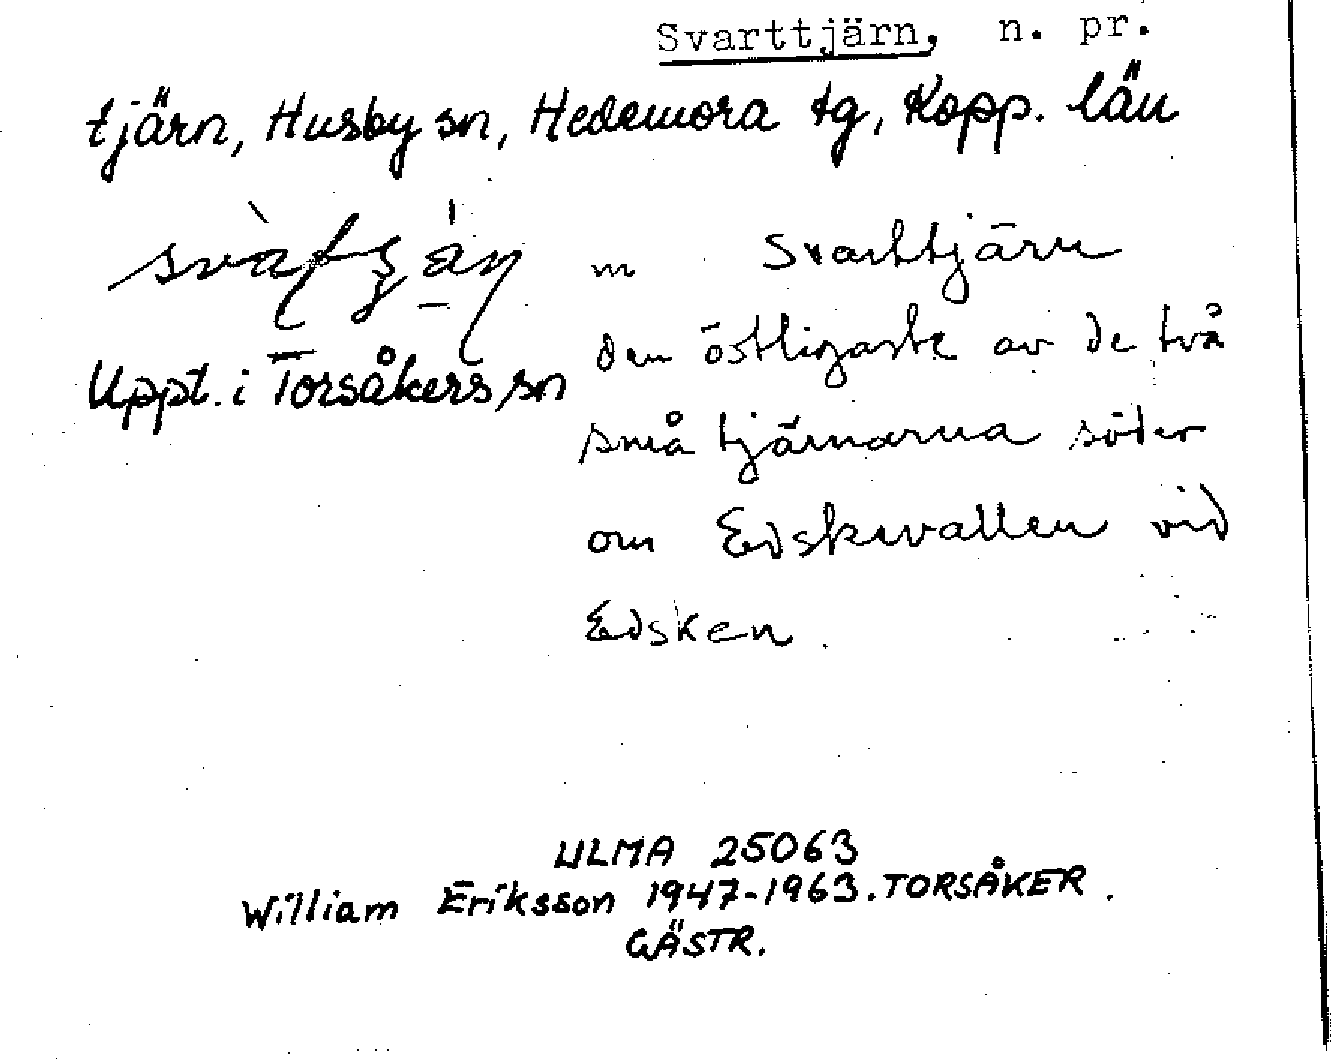 Svarttjärn, n. pr.
tjärn, Husby sn, Hedemora tg, Kopp. län
m Svarttjärn
den östligaste av de två
Uppt. i Torsåkers sn
små tjärnarna söder
om Edskevallen vid
Edsken.
ULMA 25063
William Eriksson 1947-1963. TORSÅKER.
GÄSTR.